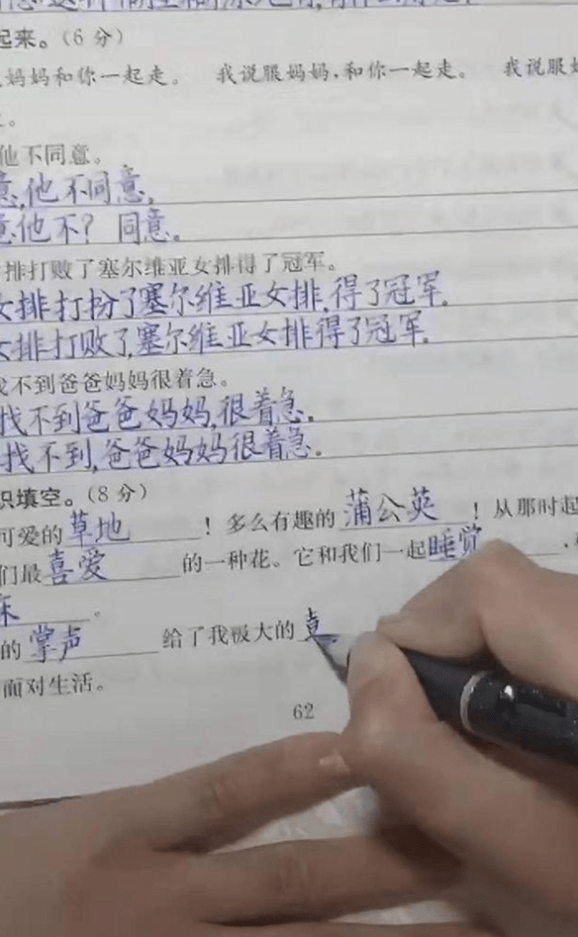 起来。(6分)
妈妈和你一起走。 我说服妈妈,和你一起走。 我说服妈
他不同意。
意,他不同意。
意他不?同意。
排打败了塞尔维亚女排得了冠军。
女排打扮了塞尔维亚女排,得了冠军。
女排打败了,塞尔维亚女排得了冠军。
找不到爸爸妈妈很着急。
找不到爸爸妈妈,很着急。
找不到,爸爸妈妈很着急。
识填空。(8分)
可爱的草地!多么有趣的蒲公英!从那时起
们最喜爱的一种花。它和我们一起睡觉,
的掌声给了我极大的
面对生活。
62